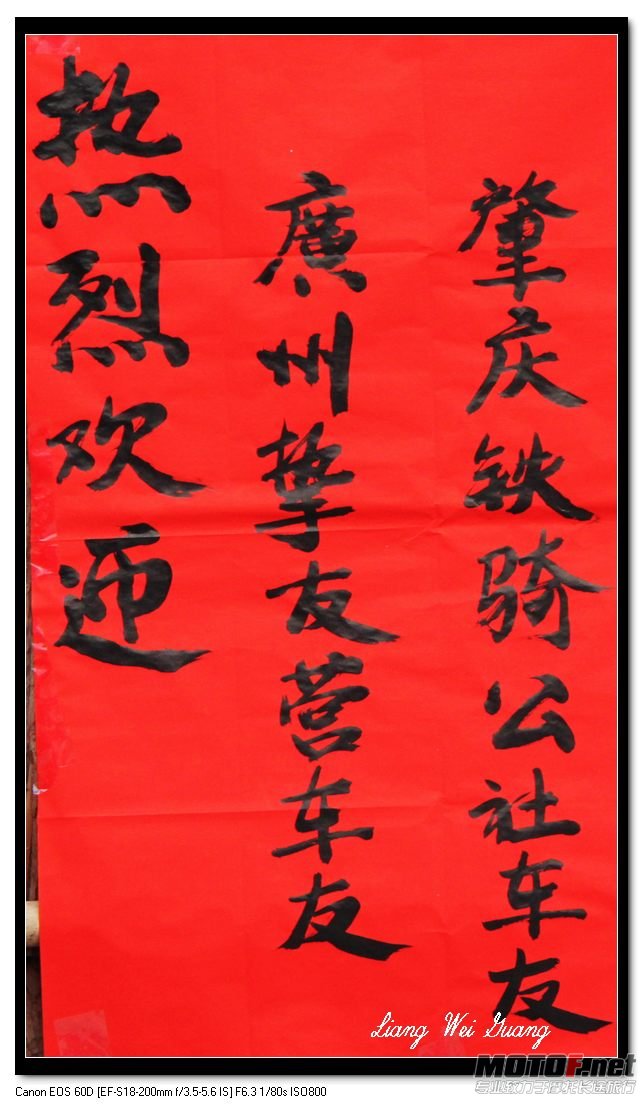 肇庆铁骑公社车友
廣州挚友营车友
热烈欢迎
Liang Wei Guang
MOTOF.net
专业致力于摩托长途旅行
Canon EOS 60D [EF-S18-200mm f/3.5-5.6 IS] F6.3 1/80s ISO800